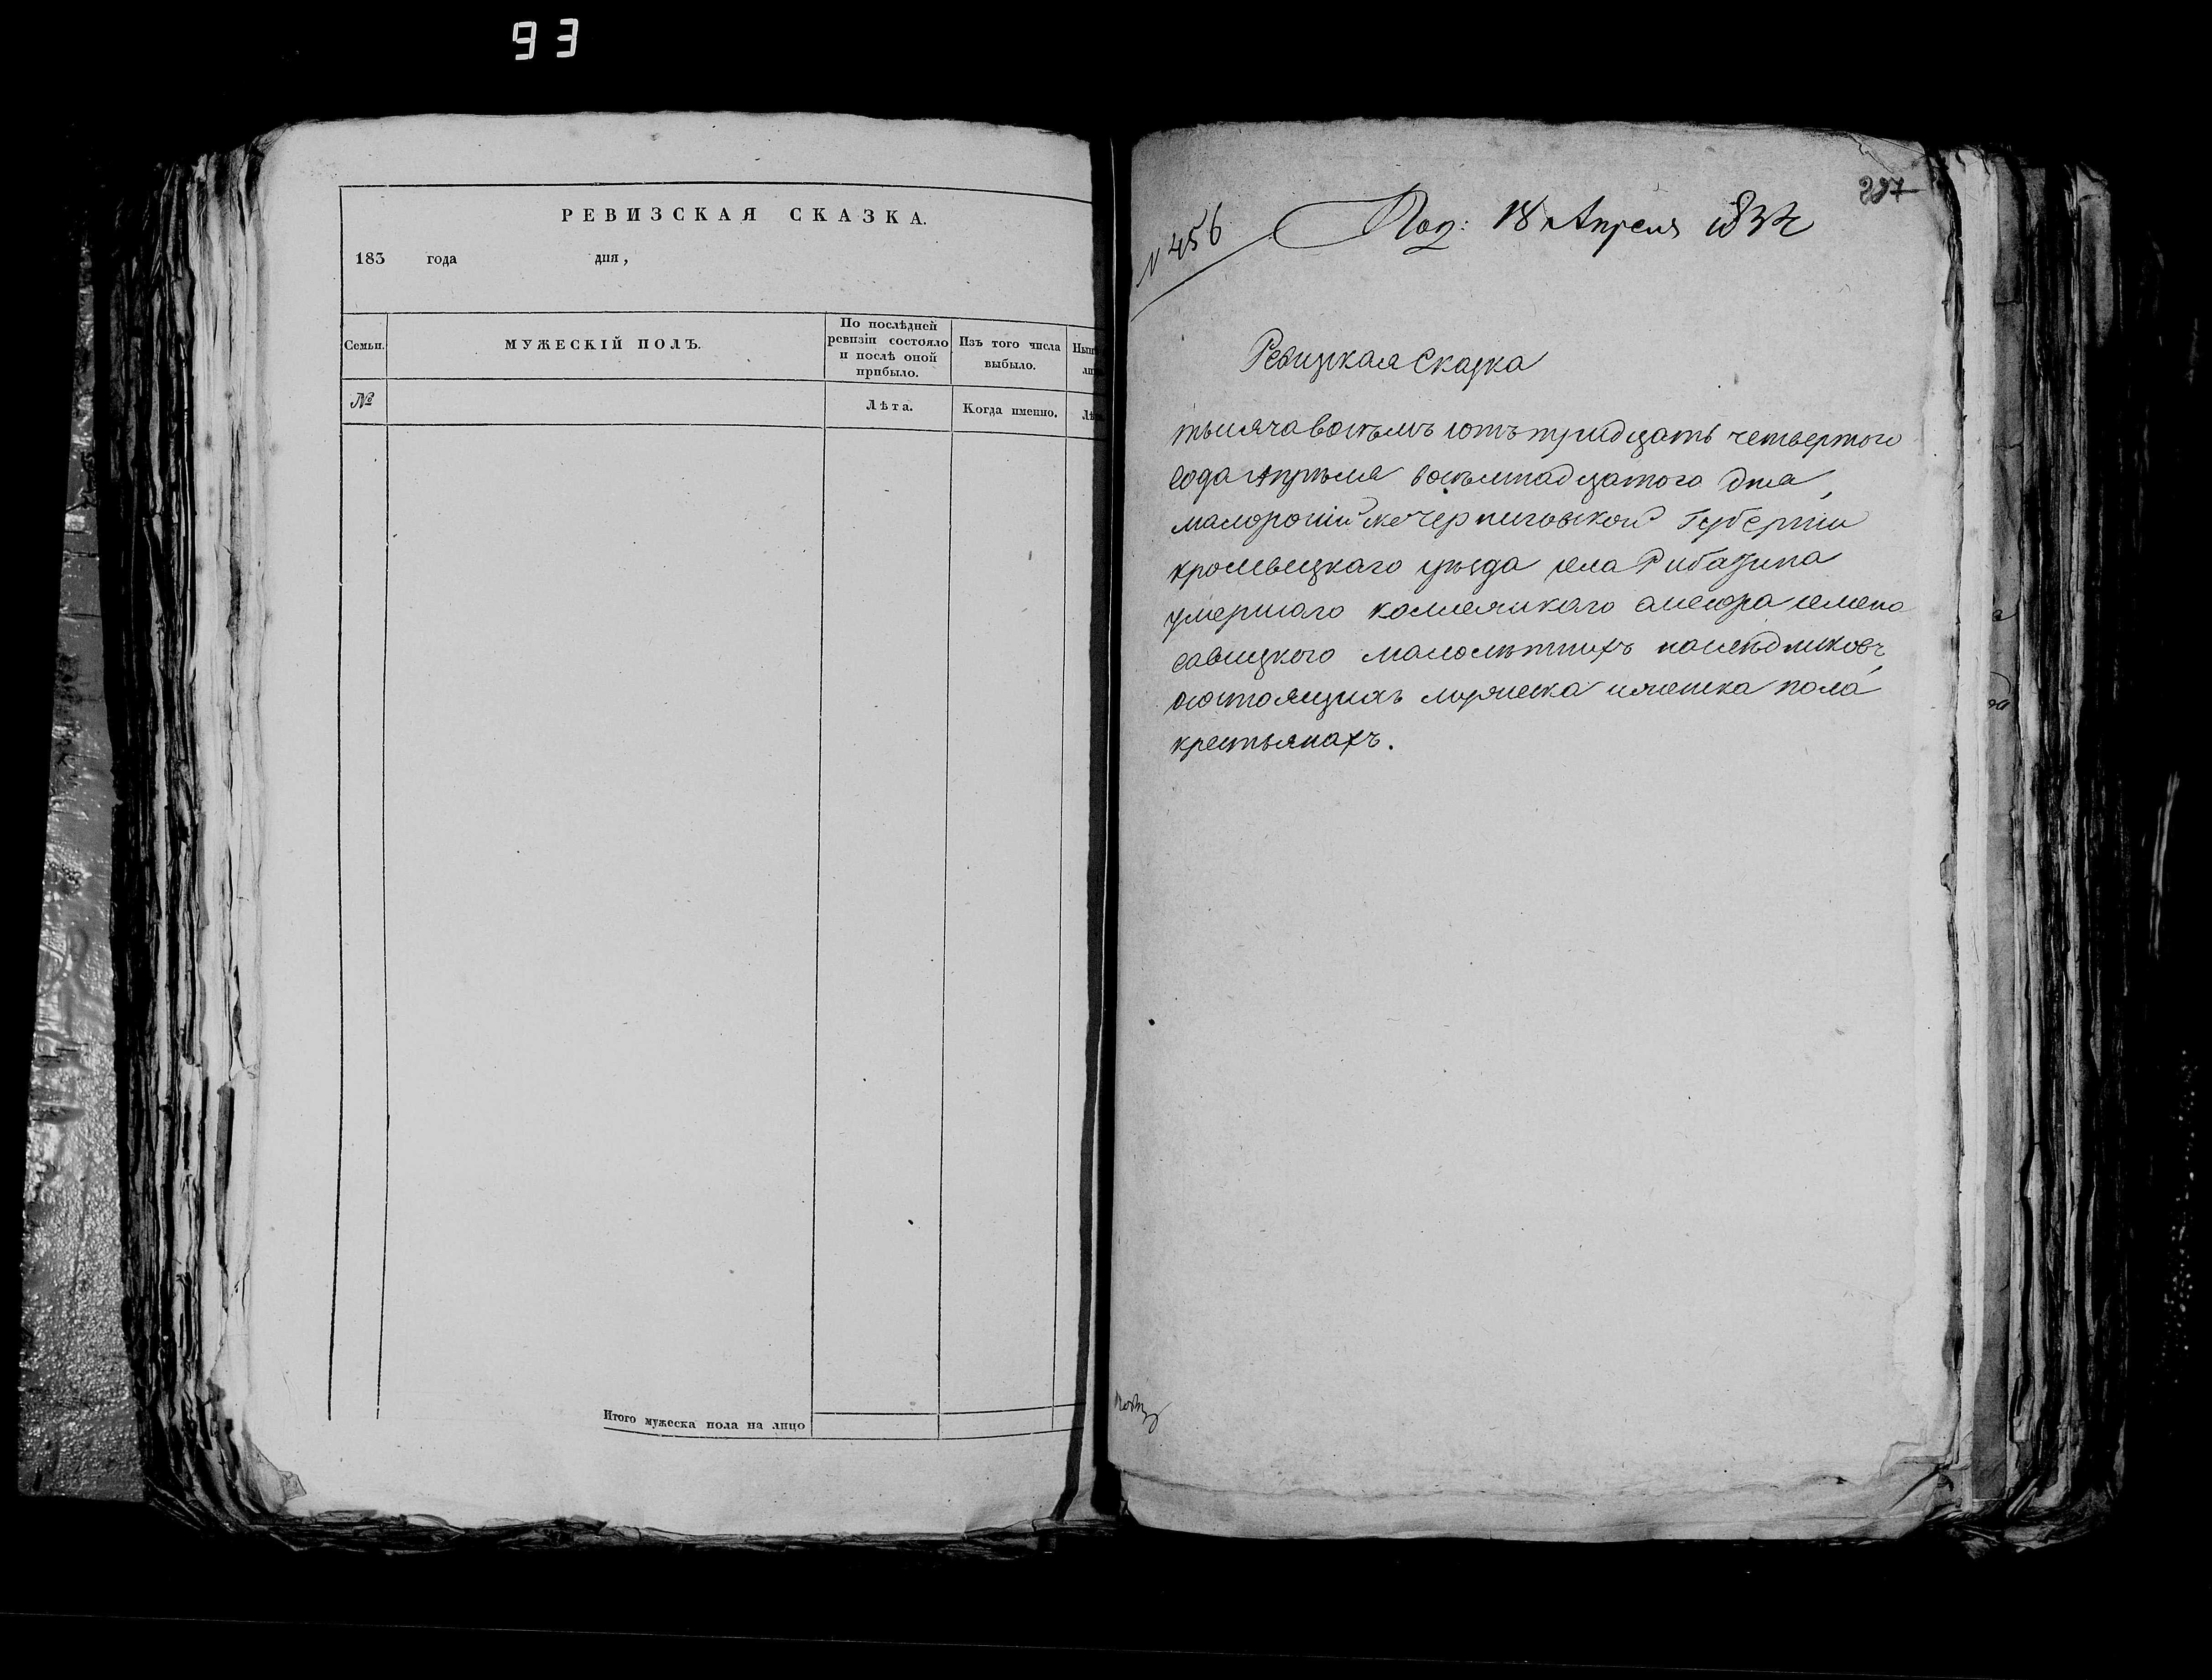 93
РЕВИЗСКАЯ СКАЗКА.
183 года дня,
Семьи.
МУЖЕСКІЙ ПОЛЪ.
По послѣдней
ревизіи состояло
и послѣ оной
прибыло.
Изъ того числа
выбыло.
№
Лѣта.
Когда именно.
Итого мужеска пола на лицо
297
N 456
Под: 18 Апреля 1834
Ревизкая Сказка
тысяча восъмъ сотъ тридцать четвертого
года Апрѣля восѣмнадцатого дня,
малоросийской черниговской Губернии
кролевецкаго уѣзда села Рибатина
умершаго колежскаго асесора семена
савицкого малолѣтнихъ наследниковъ,
состоящихъ мужеска иженска пола
крестьянахъ.